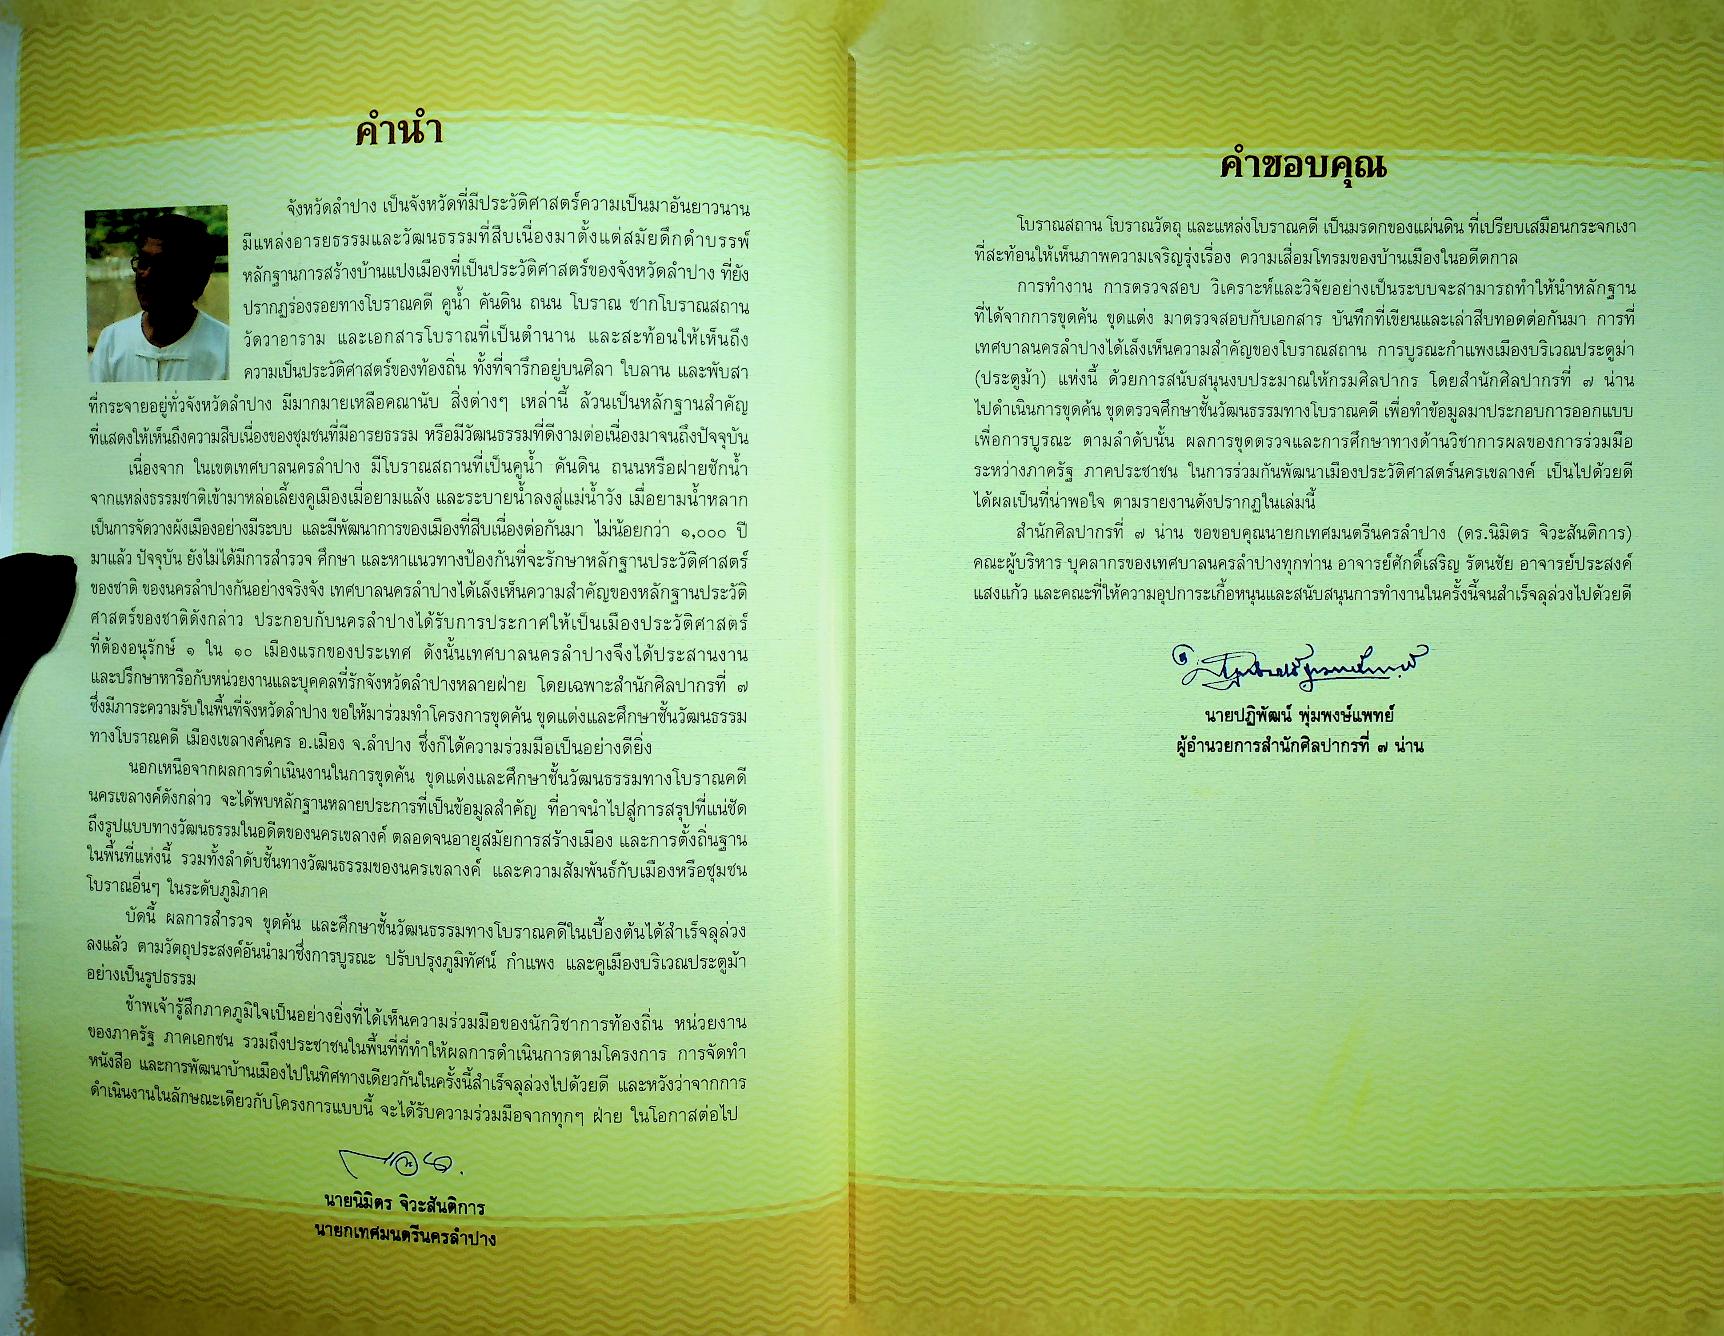 คำนำ
จังหวัดลำปาง เป็นจังหวัดที่มีประวัติศาสตร์ความเป็นมาอันยาวนาน
มีแหล่งอารยธรรมและวัฒนธรรมที่สืบเนื่องมาตั้งแต่สมัยดึกดำบรรพ์
หลักฐานการสร้างบ้านแปงเมืองที่เป็นประวัติศาสตร์ของจังหวัดลำปาง ที่ยัง
ปรากฏร่องรอยทางโบราณคดี คูน้ำ คันดิน ถนน โบราณ ซากโบราณสถาน
วัดวาอาราม และเอกสารโบราณที่เป็นตำนาน และสะท้อนให้เห็นถึง
ความเป็นประวัติศาสตร์ของท้องถิ่น ทั้งที่จารึกอยู่บนศิลา ใบลาน และพับสา
ที่กระจายอยู่ทั่วจังหวัดลำปาง มีมากมายเหลือคณานับ สิ่งต่างๆ เหล่านี้ ล้วนเป็นหลักฐานสำคัญ
ที่แสดงให้เห็นถึงความสืบเนื่องของชุมชนที่มีอารยธรรม หรือมีวัฒนธรรมที่ดีงามต่อเนื่องมาจนถึงปัจจุบัน
เนื่องจาก ในเขตเทศบาลนครลำปาง มีโบราณสถานที่เป็นคูน้ำ คันดิน ถนนหรือฝายชักน้ำ
จากแหล่งธรรมชาติเข้ามาหล่อเลี้ยงคูเมืองเมื่อยามแล้ง และระบายน้ำลงสู่แม่น้ำวัง เมื่อยามน้ำหลาก
เป็นการจัดวางผังเมืองอย่างมีระบบ และมีพัฒนาการของเมืองที่สืบเนื่องต่อกันมา ไม่น้อยกว่า ๑,๐๐๐ ปี
มาแล้ว ปัจจุบัน ยังไม่ได้มีการสำรวจ ศึกษา และหาแนวทางป้องกันที่จะรักษาหลักฐานประวัติศาสตร์
ของชาติ ของนครลำปางกันอย่างจริงจัง เทศบาลนครลำปางได้เล็งเห็นความสำคัญของหลักฐานประวัติ
ศาสตร์ของชาติดังกล่าว ประกอบกับนครลำปางได้รับการประกาศให้เป็นเมืองประวัติศาสตร์
ที่ต้องอนุรักษ์ ๑ ใน ๑๐ เมืองแรกของประเทศ ดังนั้นเทศบาลนครลำปางจึงได้ประสานงาน
และปรึกษาหารือกับหน่วยงานและบุคคลที่รักจังหวัดลำปางหลายฝ่าย โดยเฉพาะสำนักศิลปากรที่ ๗
ซึ่งมีภาระความรับในพื้นที่จังหวัดลำปาง ขอให้มาร่วมทำโครงการขุดค้น ขุดแต่งและศึกษาชั้นวัฒนธรรม
ทางโบราณคดี เมืองเขลางค์นคร อ.เมือง จ.ลำปาง ซึ่งก็ได้ความร่วมมือเป็นอย่างดียิ่ง
นอกเหนือจากผลการดำเนินงานในการขุดค้น ขุดแต่งและศึกษาชั้นวัฒนธรรมทางโบราณคดี
นครเขลางค์ดังกล่าว จะได้พบหลักฐานหลายประการที่เป็นข้อมูลสำคัญ ที่อาจนำไปสู่การสรุปที่แน่ชัด
ถึงรูปแบบทางวัฒนธรรมในอดีตของนครเขลางค์ ตลอดจนอายุสมัยการสร้างเมือง และการตั้งถิ่นฐาน
ในพื้นที่แห่งนี้ รวมทั้งลำดับชั้นทางวัฒนธรรมของนครเขลางค์ และความสัมพันธ์กับเมืองหรือชุมชน
โบราณอื่นๆ ในระดับภูมิภาค
บัดนี้ ผลการสำรวจ ขุดค้น และศึกษาชั้นวัฒนธรรมทางโบราณคดีในเบื้องต้นได้สำเร็จลุล่วง
ลงแล้ว ตามวัตถุประสงค์อันนำมาซึ่งการบูรณะ ปรับปรุงภูมิทัศน์ กำแพง และคูเมืองบริเวณประตูม้า
อย่างเป็นรูปธรรม
ข้าพเจ้ารู้สึกภาคภูมิใจเป็นอย่างยิ่งที่ได้เห็นความร่วมมือของนักวิชาการท้องถิ่น หน่วยงาน
ของภาครัฐ ภาคเอกชน รวมถึงประชาชนในพื้นที่ที่ทำให้ผลการดำเนินการตามโครงการ การจัดทำ
หนังสือ และการพัฒนาบ้านเมืองไปในทิศทางเดียวกันในครั้งนี้สำเร็จลุล่วงไปด้วยดี และหวังว่าจากการ
ดำเนินงานในลักษณะเดียวกับโครงการแบบนี้ จะได้รับความร่วมมือจากทุกๆ ฝ่าย ในโอกาสต่อไป
นายนิมิตร จิวะสันติการ
นายกเทศมนตรีนครลำปาง
คำขอบคุณ
โบราณสถาน โบราณวัตถุ และแหล่งโบราณคดี เป็นมรดกของแผ่นดิน ที่เปรียบเสมือนกระจกเงา
ที่สะท้อนให้เห็นภาพความเจริญรุ่งเรื่อง ความเสื่อมโทรมของบ้านเมืองในอดีตกาล
การทำงาน การตรวจสอบ วิเคราะห์และวิจัยอย่างเป็นระบบจะสามารถทำให้นำหลักฐาน
ที่ได้จากการขุดค้น ขุดแต่ง มาตรวจสอบกับเอกสาร บันทึกที่เขียนและเล่าสืบทอดต่อกันมา การที่
เทศบาลนครลำปางได้เล็งเห็นความสำคัญของโบราณสถาน การบูรณะกำแพงเมืองบริเวณประตูม่า
(ประตูม้า) แห่งนี้ ด้วยการสนับสนุนงบประมาณให้กรมศิลปากร โดยสำนักศิลปากรที่ ๗ น่าน
ไปดำเนินการขุดค้น ขุดตรวจศึกษาชั้นวัฒนธรรมทางโบราณคดี เพื่อทำข้อมูลมาประกอบการออกแบบ
เพื่อการบูรณะ ตามลำดับนั้น ผลการขุดตรวจและการศึกษาทางด้านวิชาการผลของการร่วมมือ
ระหว่างภาครัฐ ภาคประชาชน ในการร่วมกันพัฒนาเมืองประวัติศาสตร์นครเขลางค์ เป็นไปด้วยดี
ได้ผลเป็นที่น่าพอใจ ตามรายงานดังปรากฏในเล่มนี้
สำนักศิลปากรที่ ๗ น่าน ขอขอบคุณนายกเทศมนตรีนครลำปาง (ดร.นิมิตร จิวะสันติการ)
คณะผู้บริหาร บุคลากรของเทศบาลนครลำปางทุกท่าน อาจารย์ศักดิ์เสริญ รัตนชัย อาจารย์ประสงค์
แสงแก้ว และคณะที่ให้ความอุปการะเกื้อหนุนและสนับสนุนการทำงานในครั้งนี้จนสำเร็จลุล่วงไปด้วยดี
นายปฏิพัฒน์ พุ่มพงษ์แพทย์
ผู้อำนวยการสำนักศิลปากรที่ ๗ น่าน